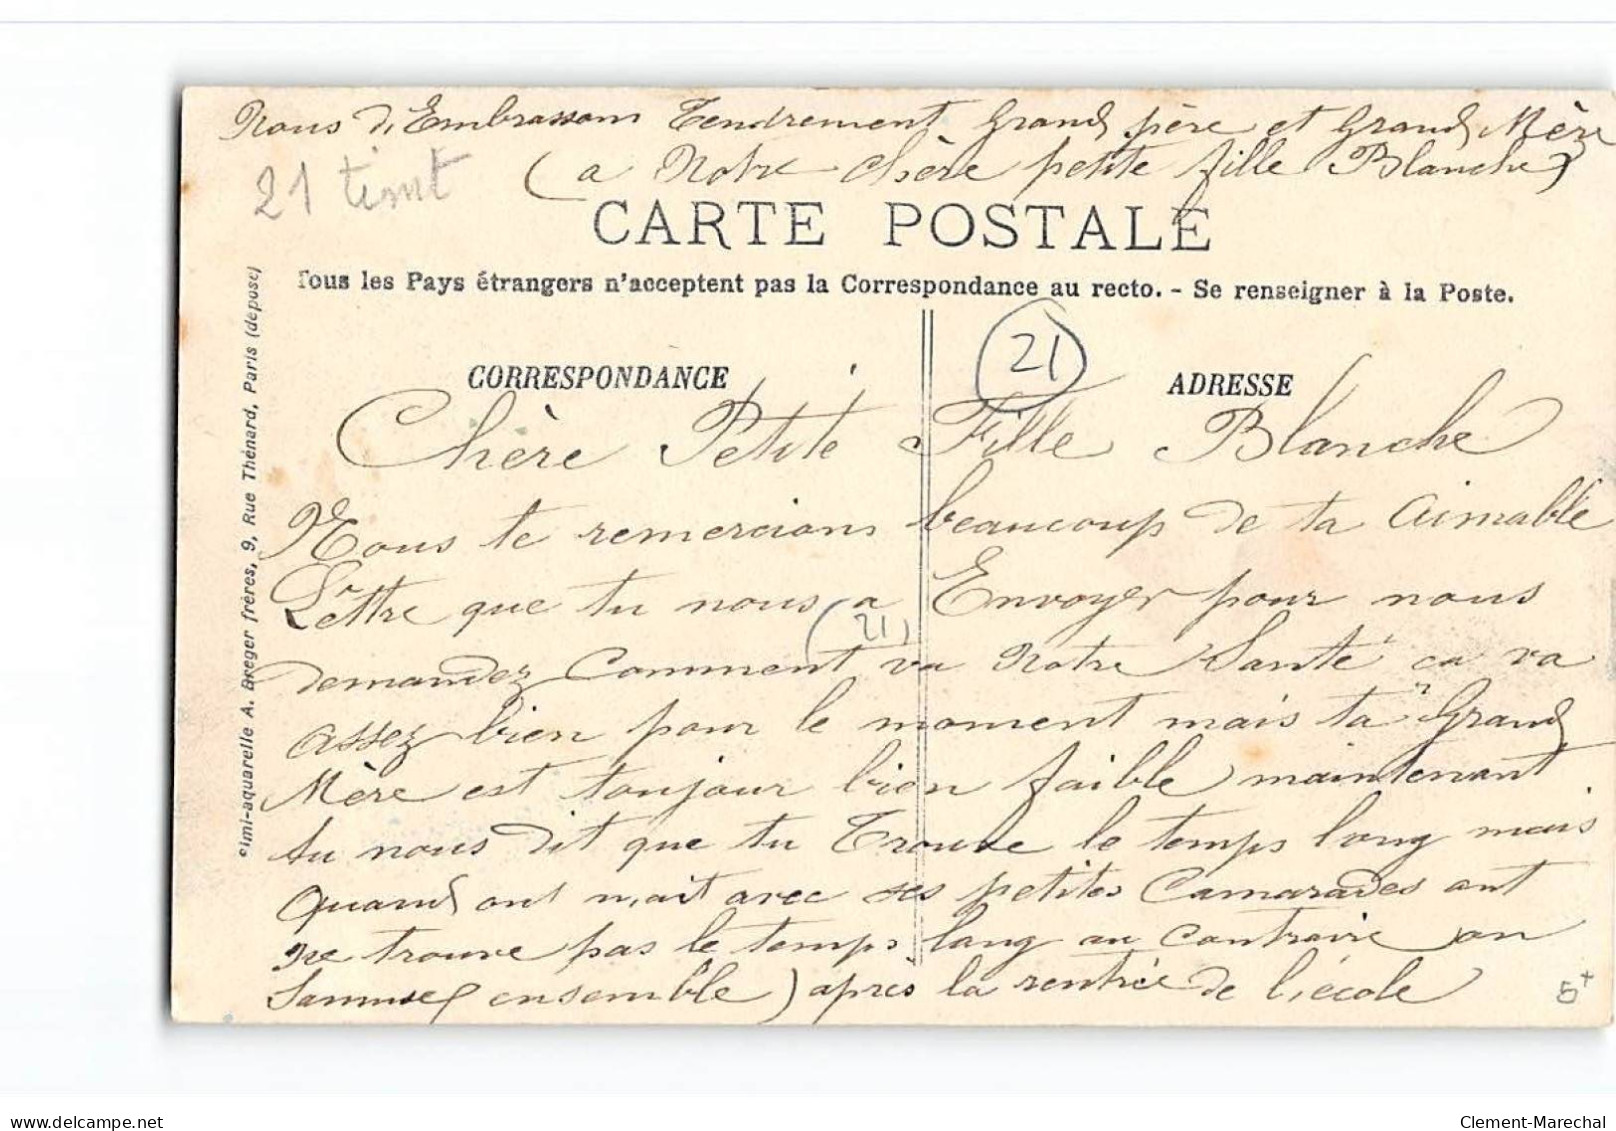 Nous d,Embrassons Tendrement Grand père et Grand Mère
(a Notre chère petite fille Blanche)
21
CARTE POSTALE
Tous les Pays étrangers n'acceptent pas la Correspondance au recto. - Se renseigner à la Poste.
21
CORRESPONDANCE
ADRESSE
Chère Petite Fille Blanche
Nous te remercions beaucoup de ta Aimable
Lettre que tu nous a Envoyer pour nous
(21)
demandez Comment va Notre Santé ca va
assez bien pour le moment mais ta Grand
Mère est toujour bien faible maintenant
tu nous dit que tu Trouve le temps long mais
Quand ont n,ait avec ses petites Camarades ont
ne trouve pas le temps long au Contraire on
Samuse (ensemble) après la rentrée de l,école
5+
Simi-aquarelle A. Breger frères, 9, Rue Thénard, Paris (déposé)
www.delcampe.net
Clement-Marechal